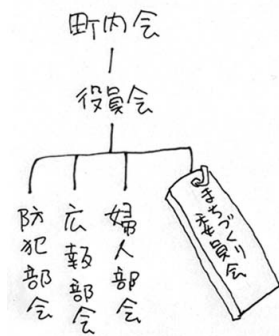 町内会
役員会
防犯部会
広報部会
婦人部会
まちづくり
委員会